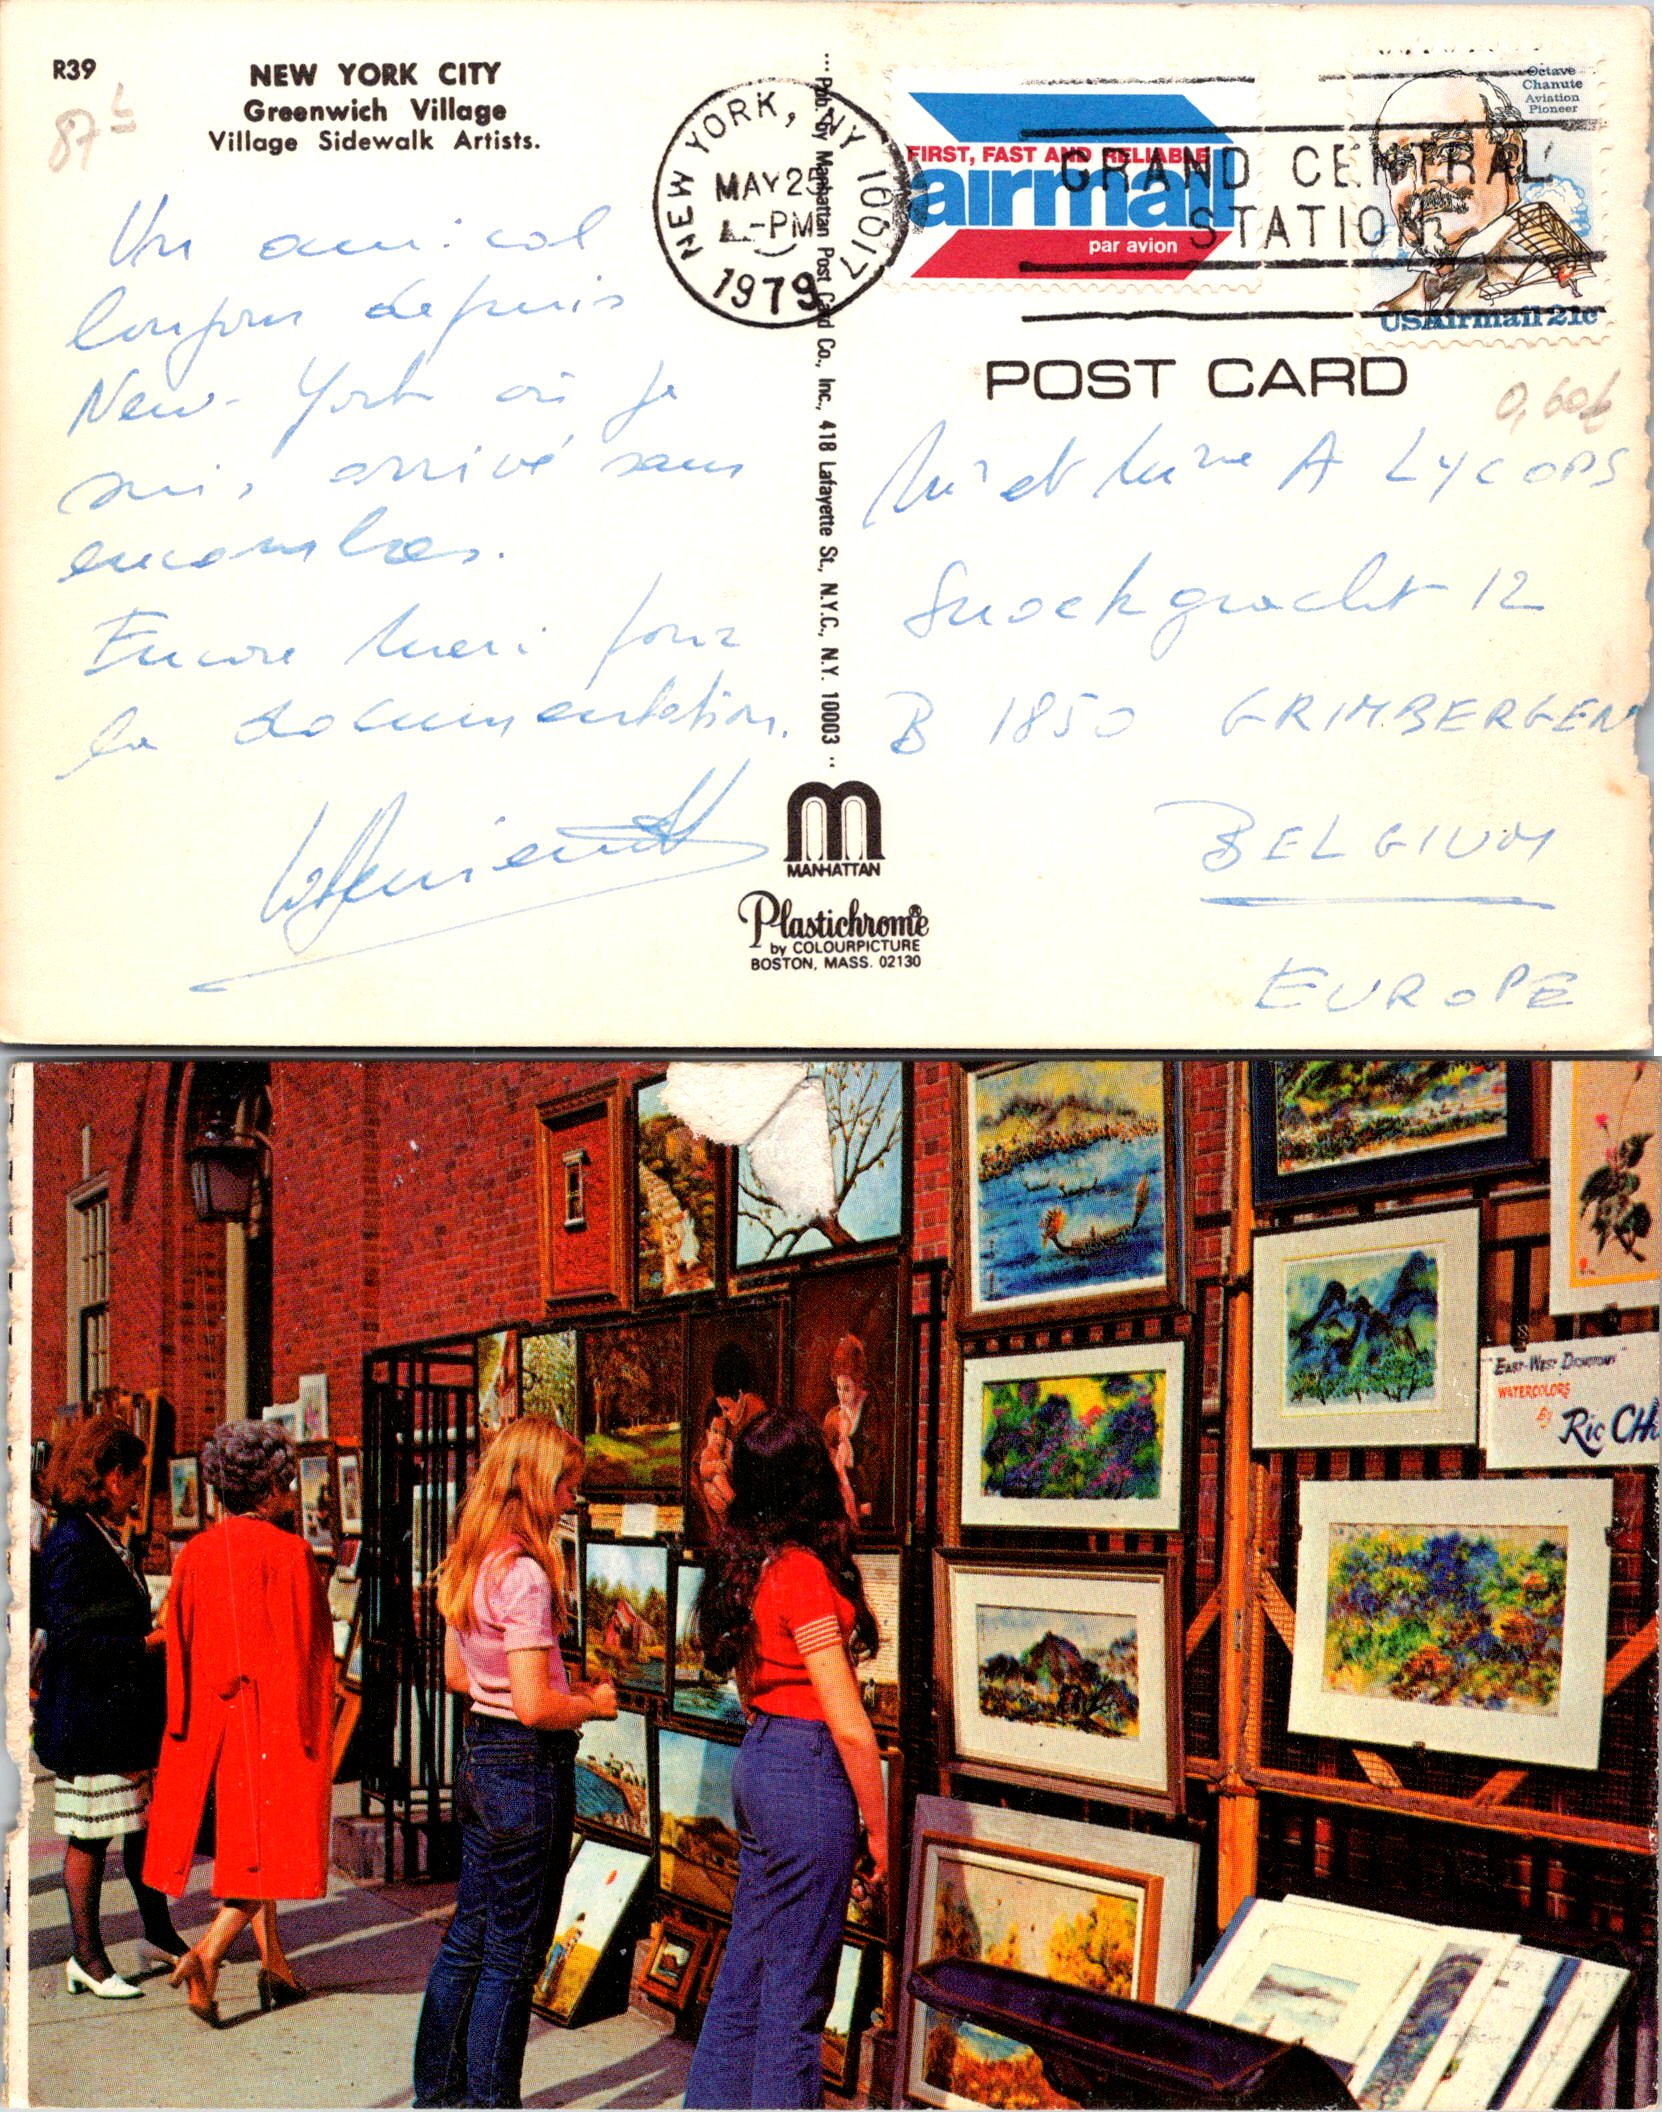 R39
NEW YORK CITY
Greenwich Village
Village Sidewalk Artists.
Un amical
bonjour depuis
New-York où je
suis arrivé sans
encombres.
Encore merci pour
la documentation.
... Pub. by Manhattan Post Card Co., Inc., 418 Lafayette St., N.Y.C., N.Y. 10003 ..
NEW YORK, NY 10017
MAY 25
PM
1979
GRAND CENTRAL
STATION
FIRST, FAST AND RELIABLE
airmail
par avion
Octave
Chanute
Aviation
Pioneer
USAirmail 21c
POST CARD
Mr et Mme A LYCOPS
Snoekgracht 12
B 1850 GRIMBERGEN
BELGIUM
EUROPE
MANHATTAN
Plastichrome®
by COLOURPICTURE
BOSTON, MASS. 02130
"EAST-WEST DICHOTOMY"
WATERCOLORS
By
Ric CHI